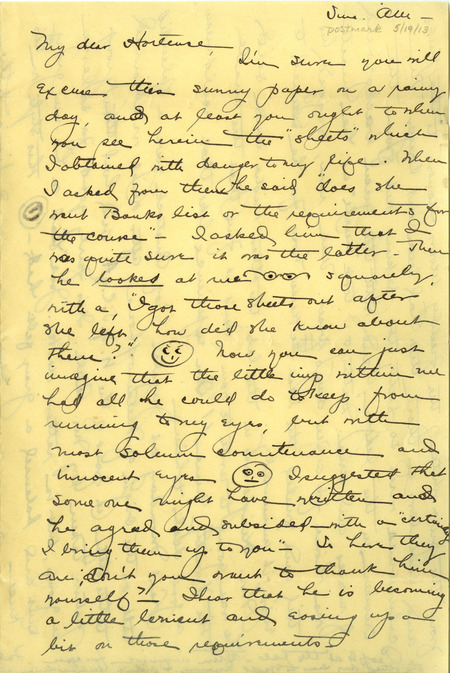 Sun. AM —
postmark 5/19/13
My dear Hortense,
I'm sure you will
excuse this sunny paper on a rainy
day, and at least you ought to when
you see herein the "sheets" which
I obtained with danger to my life. When
I asked from them he said "does she
want Banks list or the requirements for
the course" — I asked him that I
was quite sure it was the latter — Then
he looked at me squarely,
with a, "I got those sheets out after
she left. How did she know about
them?" Now you can just
imagine that the little imp within me
had all he could do to keep from
running to my eyes, but with
most solemn countenance and
innocent eyes I suggested that
some one might have written and
he agreed and subsided with a "certainly
I bring them up to you" — So here they
are, don't you want to thank him
yourself? — I hear that he is becoming
a little lenient and easing up a
bit on those requirements.